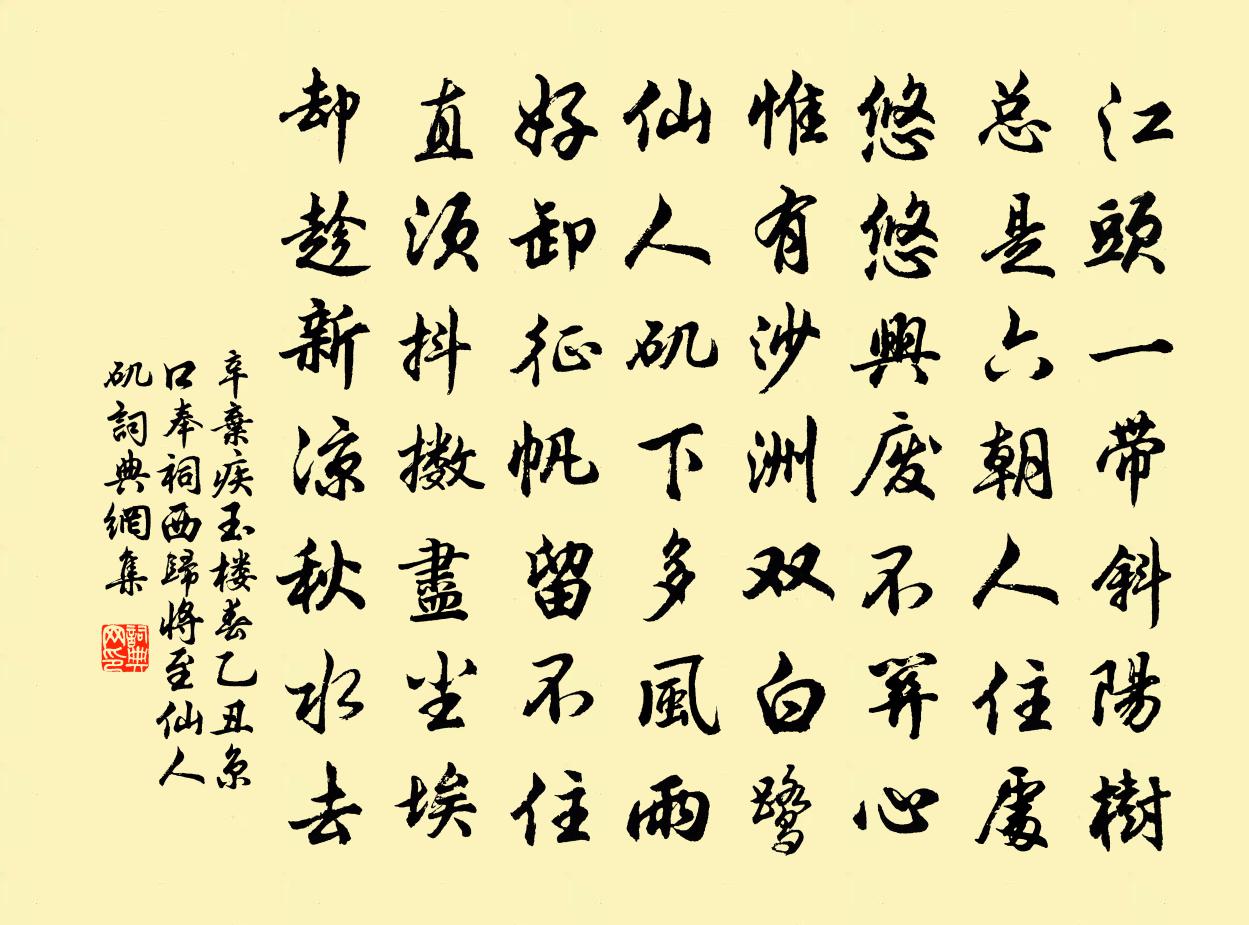 江頭一帶斜陽樹
总是六朝人住處
悠悠興废不関心
惟有沙洲双白鹭
仙人矶下多風雨
好卸征帆留不住
直须抖擞盡尘埃
却趁新凉秋水去
辛棄疾玉楼春乙丑京
口奉祠西歸將至仙人
矶詞典網集